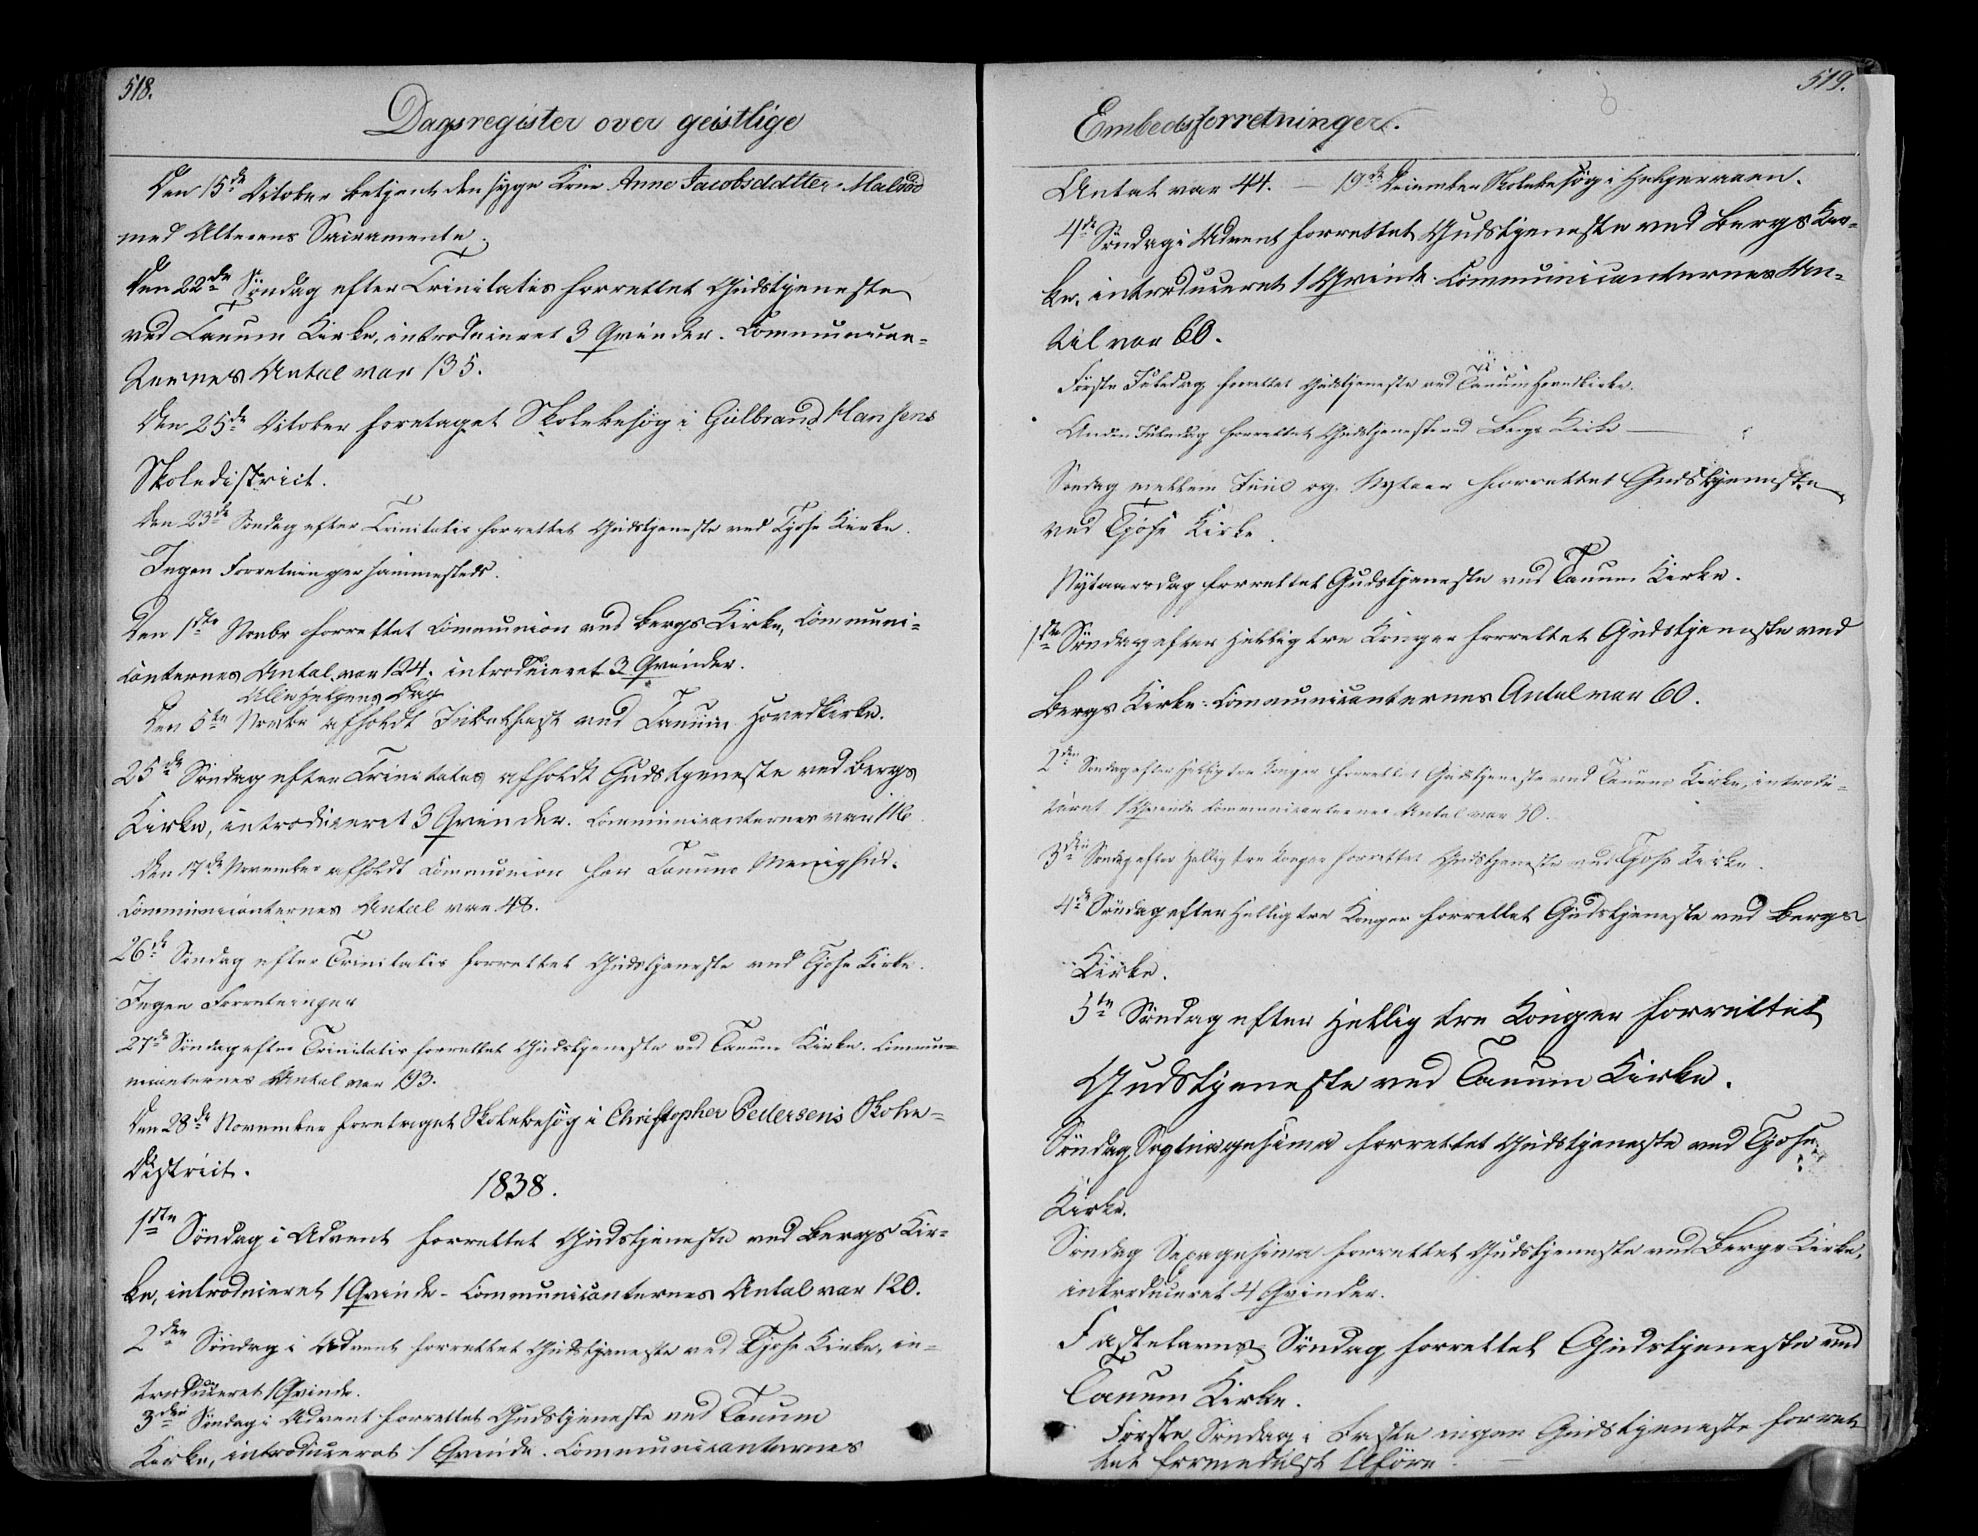 518.
Dagsregister over geistlige
Den 15de October betjent den syge Kone Anne Jacobsdatter
med Alterens Sacramente.
Den 22de Söndag efter Trinitatis forrettet Gudstjeneste
ved Tanum Kirke, introduceret 3 Qvinder. Communican-
ternes Antal var 135.
Den 25de October foretaget Skolebesög i Gulbrand Hansens
Skoledistrict.
Den 23de Söndag efter Trinitatis forrettet Gudstjeneste ved Tjose Kirke.
Ingen Forretninger sammesteds.
Den 1ste Novbr forrettet Communion ved Bergs Kirke, Communi-
canternes Antal var 124. introduceret 3 Qvinder.
Alle Helgens Dag
Den 5te Novbr afholdt ved Tanum Hovedkirke.
25de Söndag efter Trinitatis afholdt Gudstjeneste ved Bergs
Kirke, introduceret 3 Qvinder. Communicanternes var 116
Den 17de November afholdt Communion for Tanum Menighed.
Communicanternes Antal var 48.
26de Söndag efter Trinitatis forrettet Gudstjeneste ved Tjose Kirke.
Ingen Forretninger
27de Söndag efter Trinitatis forrettet Gudstjeneste ved Tanum Kirke. Commu-
nicanternes Antal var 193.
Den 28de November foretaget Skolebesög i Christopher Pedersens Skole-
District.
1838.
1ste Söndag i Advent forrettet Gudstjeneste ved Bergs Kir-
ke, introduceret 1 Qvinde - Communicanternes Antal var 120.
2den Söndag i Advent forrettet Gudstjeneste ved Tjose Kirke, in-
troduceret 1 Qvinde.
3die Söndag i Advent forrettet Gudstjeneste ved Tanum
Kirke, introduceret 1 Qvinde. Communicanternes
519.
Embedsforretninger.
Antal var 44. — 19de December Skolebesög i
4de Söndag i Advent forrettet Gudstjeneste ved Bergs Kir-
ke, introduceret 1 Qvinde. Communicanternes An-
tal var 60.
Förste Juledag forrettet Gudstjeneste ved Tanum Hovedkirke.
Anden Juledag forrettet Gudstjeneste ved Bergs Kirke —
Söndag mellem Juul og Nytaar forrettet Gudstjeneste
ved Tjose Kirke.
Nytaarsdag forrettet Gudstjeneste ved Tanum Kirke.
1ste Söndag efter Hellig tre Konger forrettet Gudstjeneste ved
Bergs Kirke. Communicanternes Antal var 60.
2den Söndag efter Hellig tre Konger forrettet Gudstjeneste ved Tanum Kirke, introdu-
ceret 1 Qvinde Communicanternes Antal var 30.
3die Söndag efter Hellig tre Konger forrettet Gudstjeneste ved Tjose Kirke.
4de Söndag efter Hellig tre Konger forrettet Gudstjeneste ved Bergs
Kirke.
5te Söndag efter Hellig tre Konger forrettet
Gudstjeneste ved Tanum Kirke.
Söndag Septuagesima forrettet Gudstjeneste ved Tjose
Kirke.
Söndag Sexagesima forrettet Gudstjeneste ved Bergs Kirke,
introduceret 4 Qvinder.
Fastelavns Söndag forrettet Gudstjeneste ved
Tanum Kirke.
Förste Söndag i Faste ingen Gudstjeneste forret-
tet formedelst Uföre.